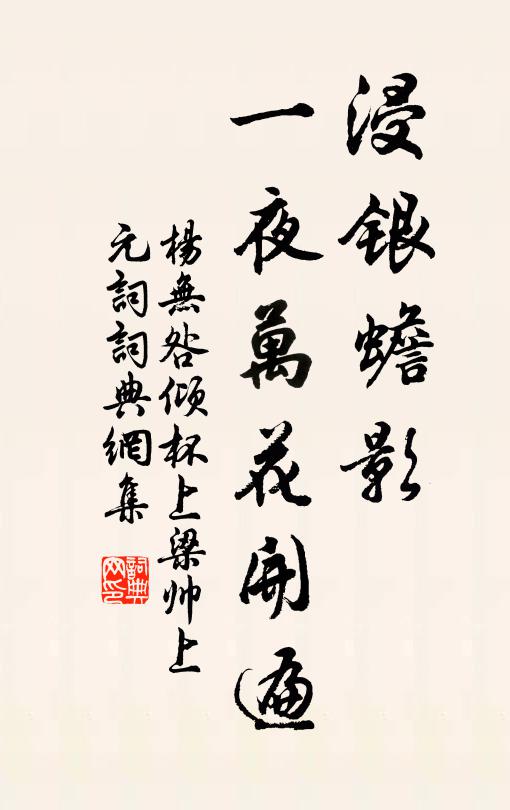 浸銀蟾影
一夜萬花開遍
楊無咎傾杯上梁帅上
元詞詞典網集
詞典网印